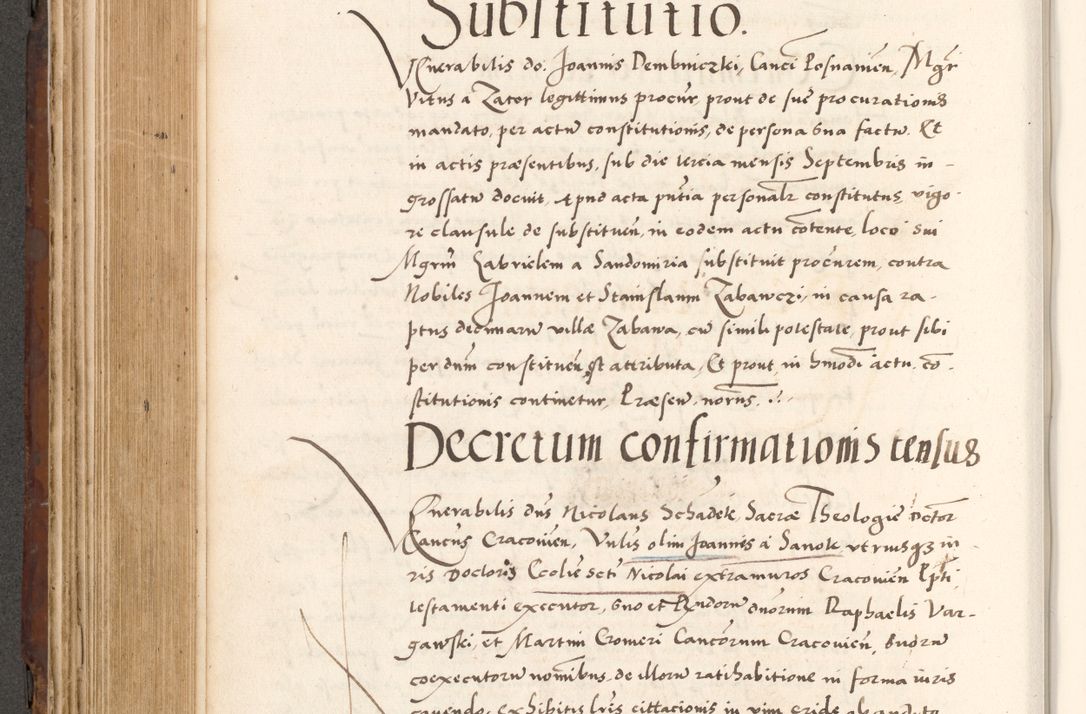 Substitutio.
Venerabilis do. Joannis Dembniczki, Canci Posnanien, Mgr
Vitus a Zator legittimus procur, prout de sue procurationis
mandato, per actu constitutionis, de persona sua factu. Et
in actis præsentibus, sub die tercia mensis Septembris in-
grossatu docuit, apud acta pntia personalr constitutus, vigo-
re clausule de substituen, in eodem actu cotente, loco sui
Mgrm Gabrielem a Sandomiria substituit procurem, contra
Nobiles Joannem et Stanislaum Zabawczi, in causa ra-
ptus decimaru villæ Zabawa, cu simili potestate, prout sibi
per dnm constituen est attributa, Et prout in hmodi actu co-
stitutionis continetur, Præsen. norns.
Decretum confirmationis census
Venerabilis dns Nicolaus Schadek, Sacræ Theologie Doctor
Cancus Cracovien, Vnlis olim Joannis a Sanok vtriusq3 iu-
ris Doctoris Ecclie scti Nicolai extra muros Cracovien Ppti,
testamenti executor, suo et Rndoru dnorum Raphaelis Var-
gawski, et Martini Cromeri Cancorum Cracovien, suoru
coexecutoru nomibus, de illoru ratihabitione in forma iuris
cavendo, exhibitis lris cittacionis in vim